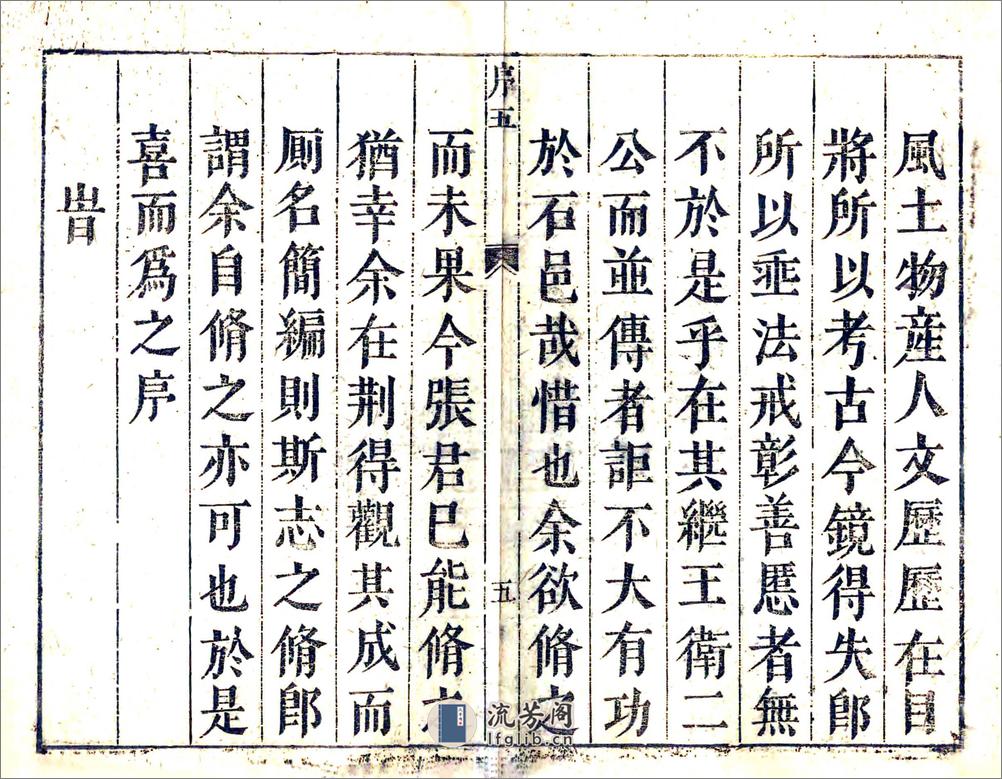 風土物產人文歷歷在目
將所以考古今鏡得失卽
所以垂法戒彰善慝者無
不於是乎在其繼王衛二
公而並傳者詎不大有功
於石邑哉惜也余欲脩之
序五
五
而未果今張君已能脩
猶幸余在荆得觀其成而
厠名簡編則斯志之脩卽
謂余自脩之亦可也於是
喜而爲之序
旹
流芳阁
lfglib.cn